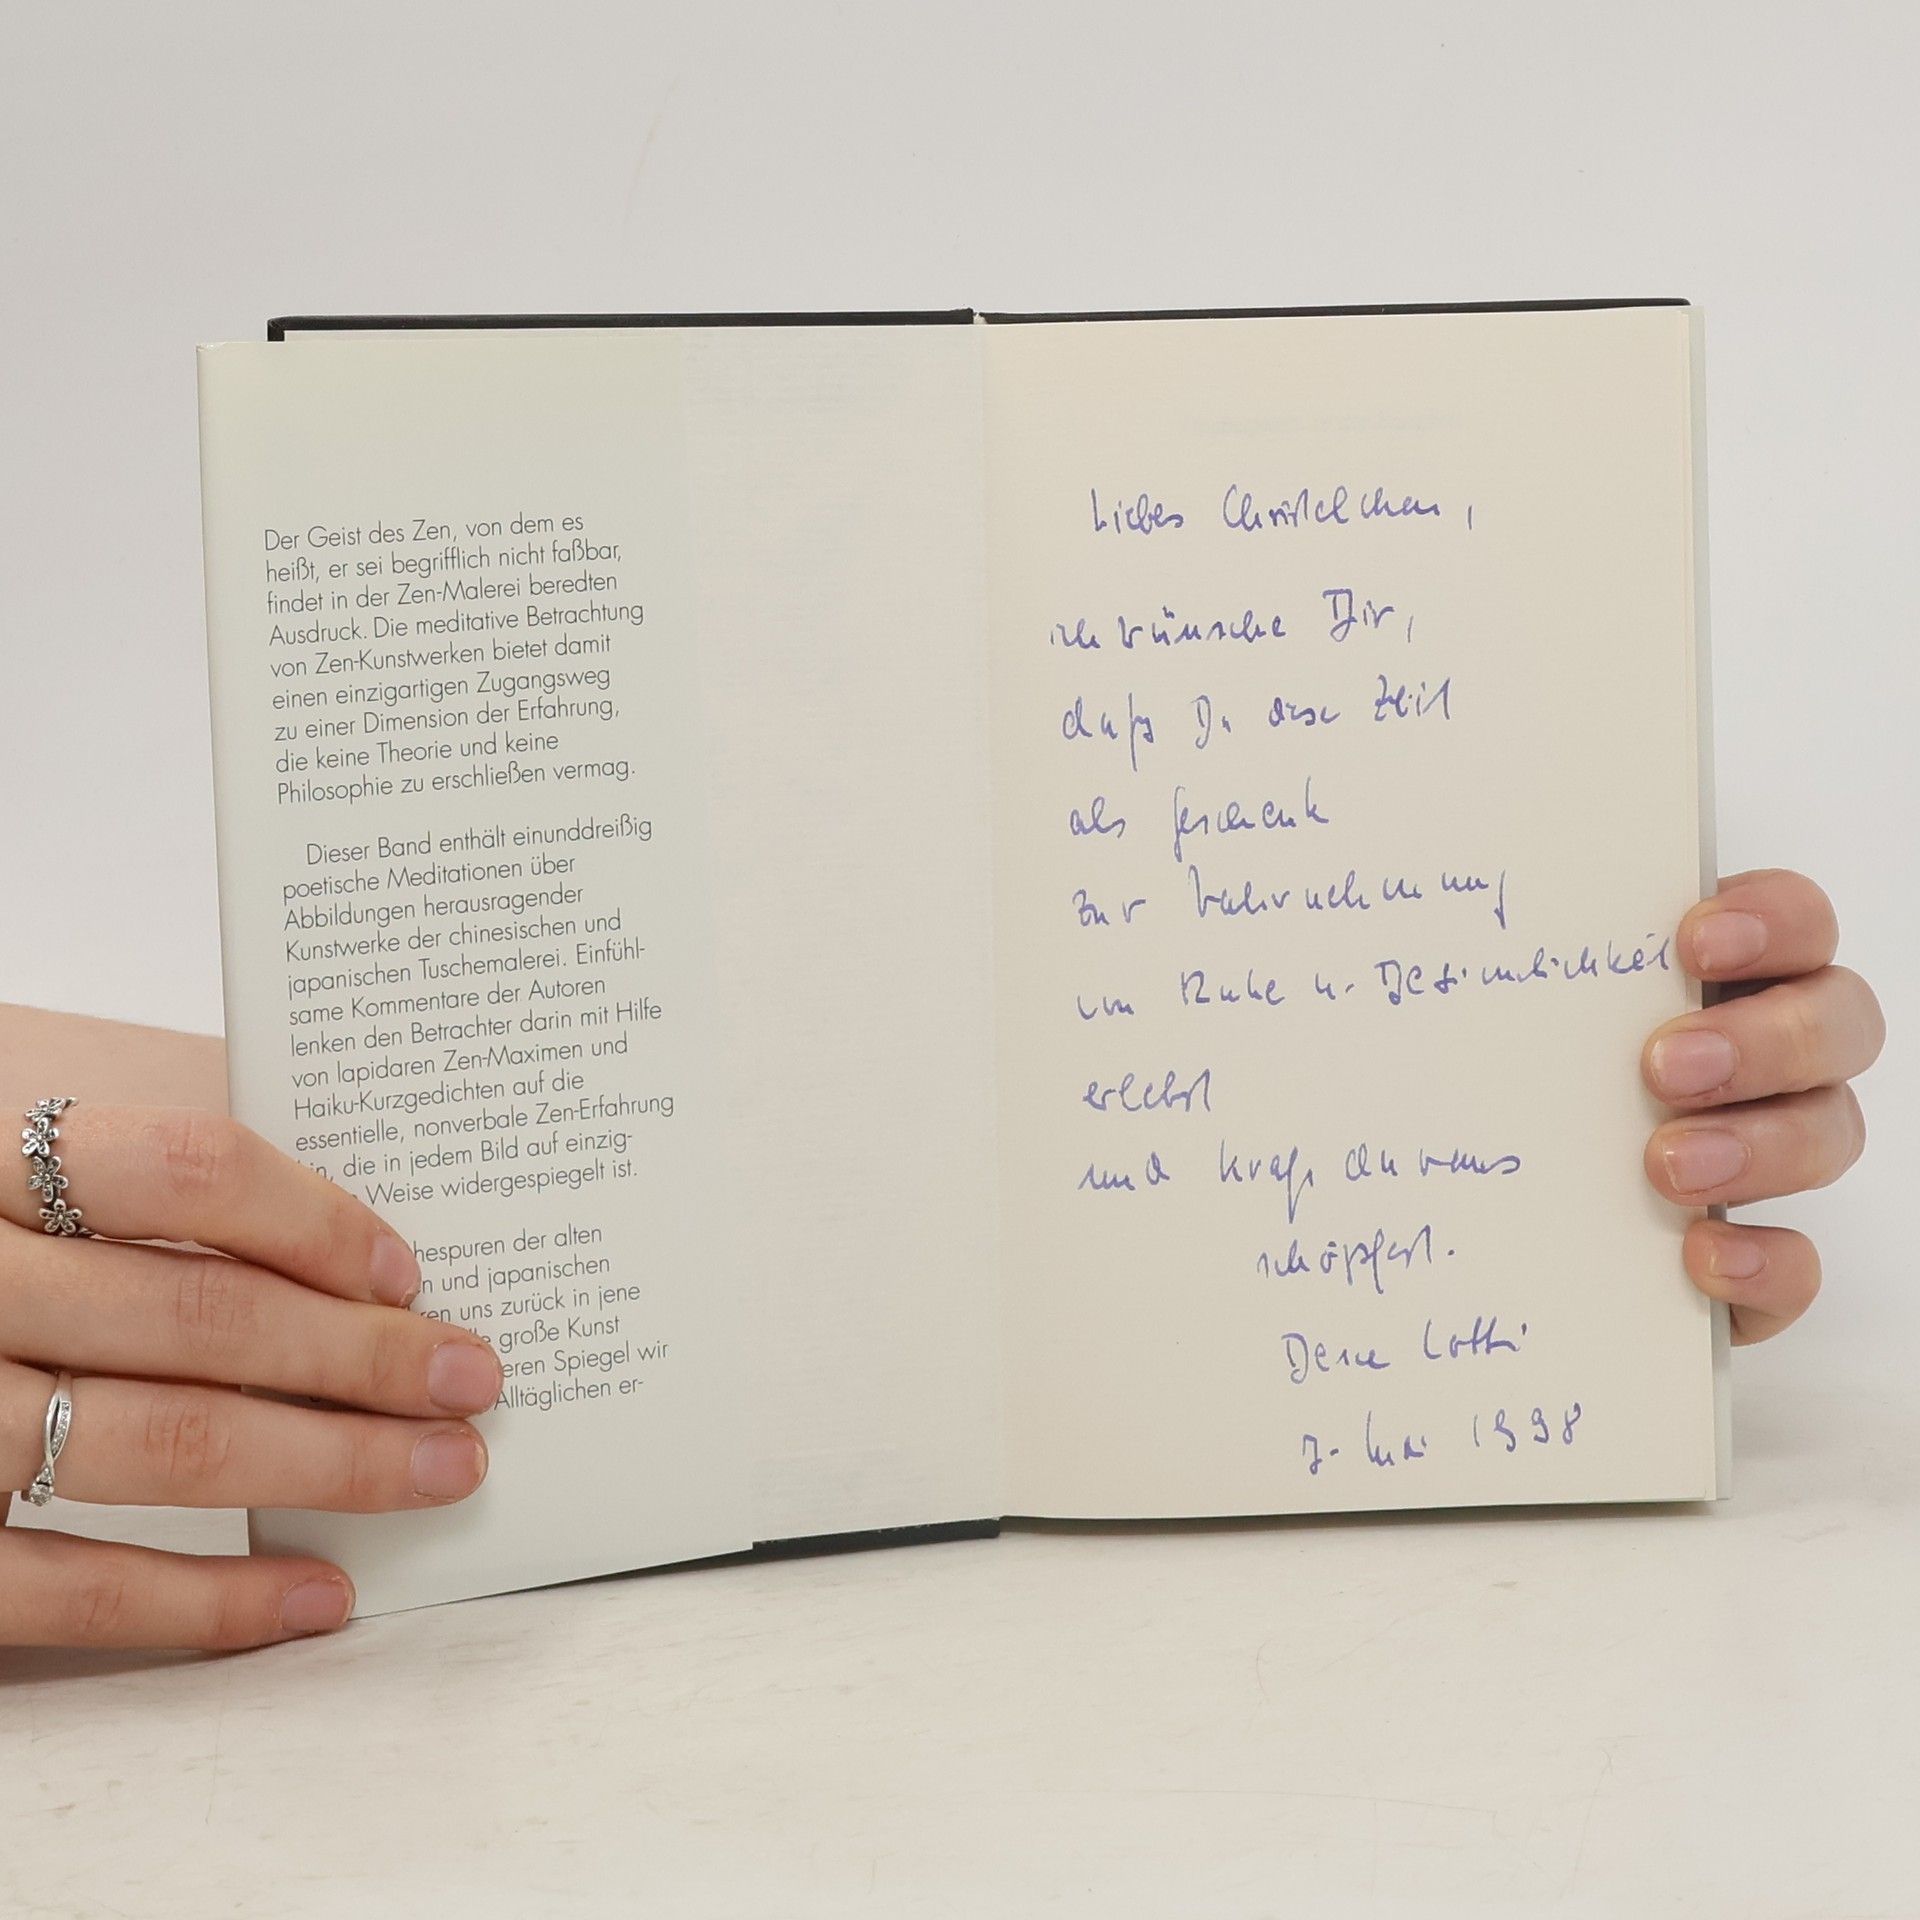 Der Geist des Zen, von dem es
heißt, er sei begrifflich nicht faßbar,
findet in der Zen-Malerei beredten
Ausdruck. Die meditative Betrachtung
von Zen-Kunstwerken bietet damit
einen einzigartigen Zugangsweg
zu einer Dimension der Erfahrung,
die keine Theorie und keine
Philosophie zu erschließen vermag.
Dieser Band enthält einunddreißig
poetische Meditationen über
Abbildungen herausragender
Kunstwerke der chinesischen und
japanischen Tuschemalerei. Einfühl-
same Kommentare der Autoren
lenken den Betrachter darin mit Hilfe
von lapidaren Zen-Maximen und
Haiku-Kurzgedichten auf die
essentielle, nonverbale Zen-Erfahrung
die in jedem Bild auf einzig-
Weise widergespiegelt ist.
hespuren der alten
und japanischen
uns zurück in jene
große Kunst
eren Spiegel wir
Alltäglichen er-
Liebes Christelchen,
ich wünsche Dir,
daß Du diese Zeit
als Geschenk
zur Wahrnehmung
von Ruhe u. Besinnlichkeit
erlebst
und Kraft daraus
schöpfst.
Deine Lotti
7. Mai 1998